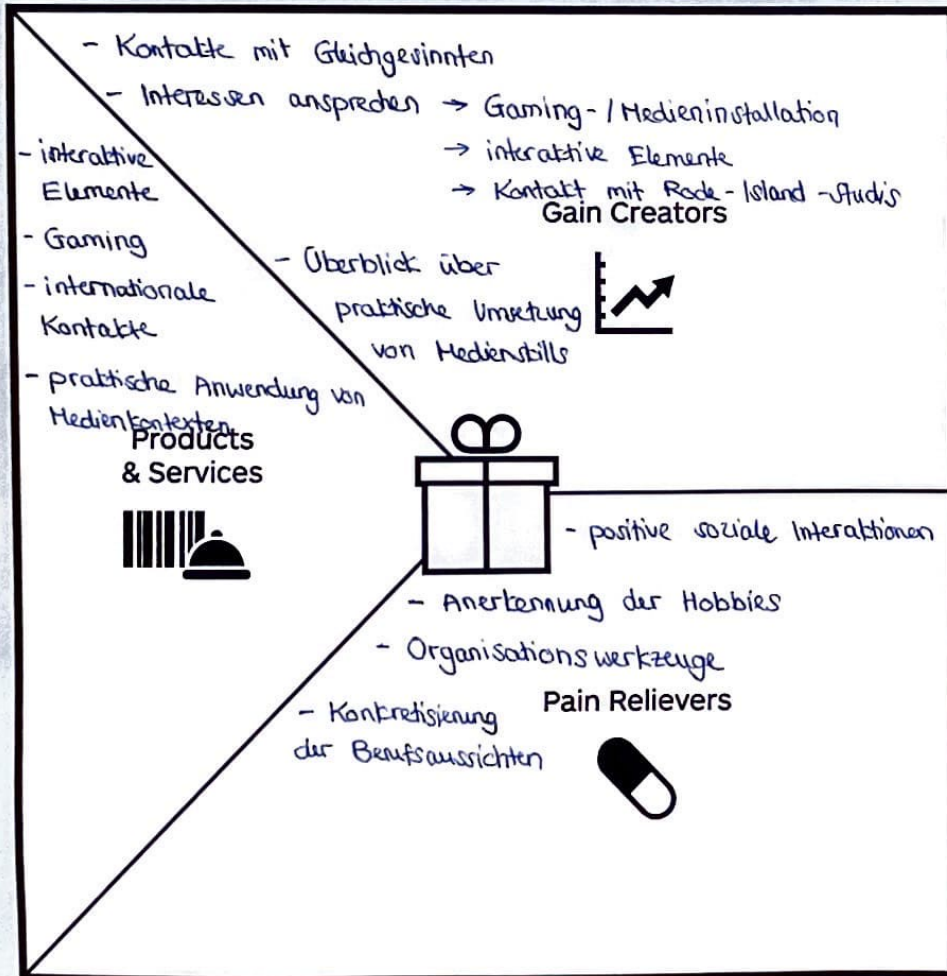 - Kontakte mit Gleichgesinnten
- Interessen ansprechen → Gaming- / Medieninstallation
→ interaktive Elemente
→ Kontakt mit Rode-Island-Studis
Gain Creators
- Überblick über
praktische Umsetzung
von Medienskills
- interaktive
Elemente
- Gaming
- internationale
Kontakte
- praktische Anwendung von
Medienkontexten
Products
& Services
- positive soziale Interaktionen
- Anerkennung der Hobbies
- Organisationswerkzeuge
Pain Relievers
- Konkretisierung
der Berufsaussichten